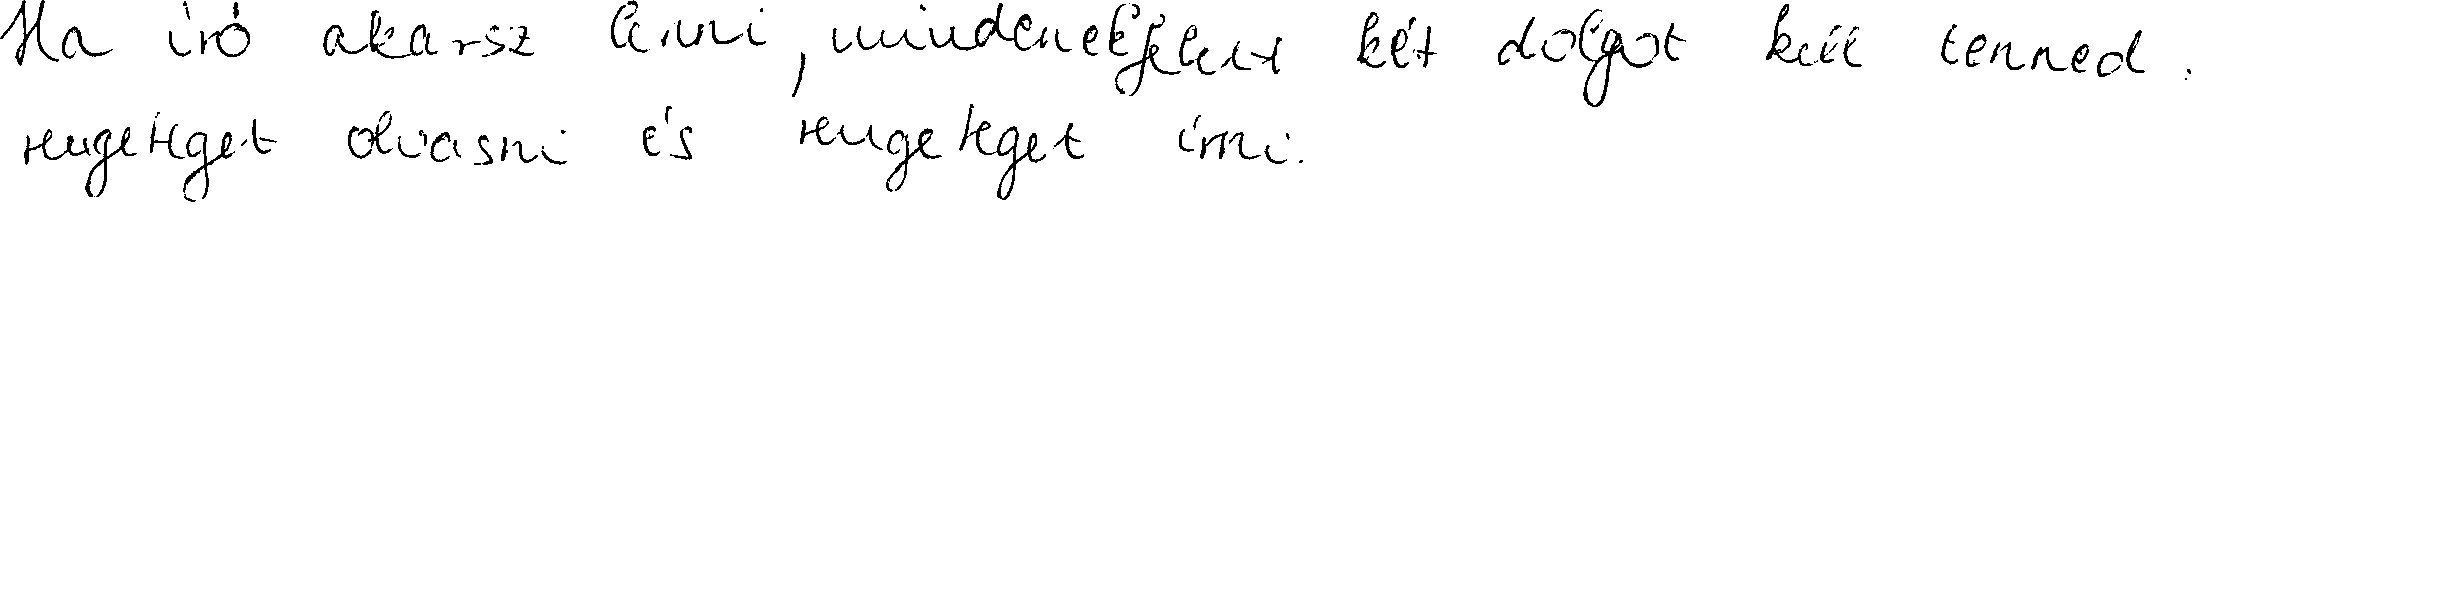 Ha író akarsz lenni, mindenekfelett két dolgot kell tenned.
rengeteget olvasni és rengeteget írni.